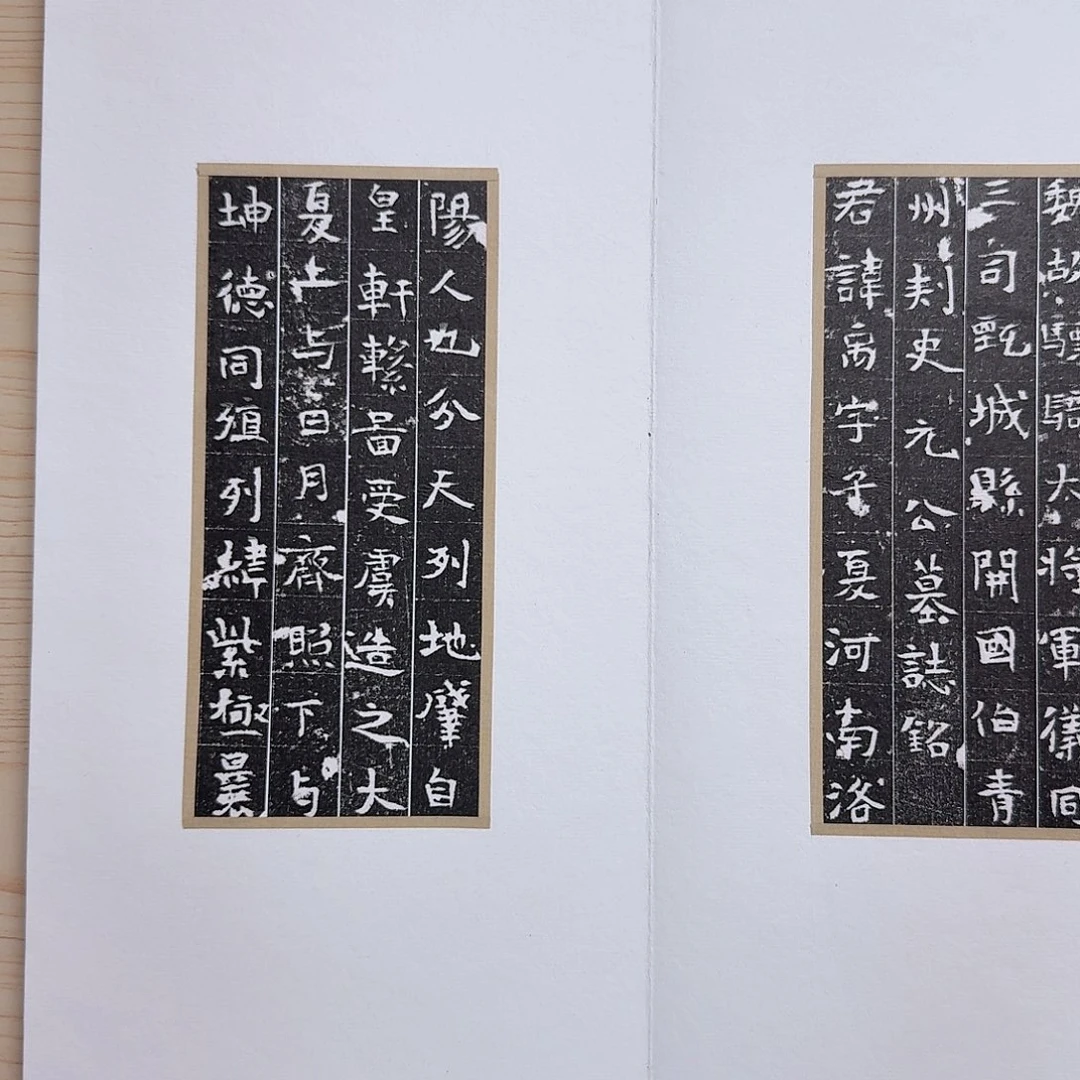 魏故驃騎大將軍儀同
三司甄城縣開國伯青
州刾史元公墓誌銘
君諱字子夏河南洛
陽人也分天列地肇自
皇軒繫啚受虞造之大
夏上与日月齊照下与
坤德同殖列緯紫極